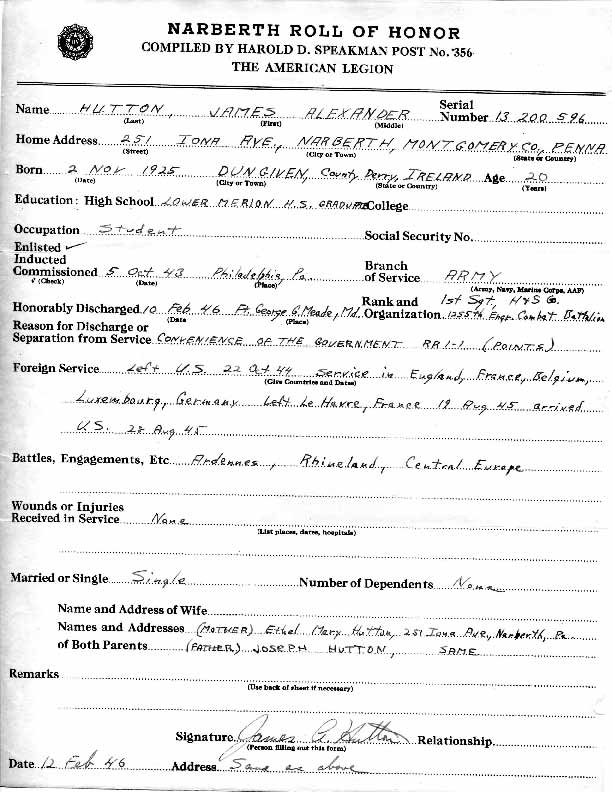 NARBERTH ROLL OF HONOR
COMPILED BY HAROLD D. SPEAKMAN POST No. 356
THE AMERICAN LEGION
Name HUTTON, JAMES ALEXANDER Serial Number 13 200 596
(Last) (First) (Middle)
Home Address 251 IONA AVE., NARBERTH, MONTGOMERY CO., PENNA
(Street) (City or Town) (State or Country)
Born 2 NOV 1925 DUNGIVEN, County Derry, IRELAND Age 20
(Date) (City or Town) (State or Country) (Years)
Education: High School LOWER MERION H.S. GRADUATE College
Occupation Student Social Security No.
Enlisted ✓
Inducted
Commissioned 5 Oct 43 Philadelphia, Pa. Branch of Service ARMY
✓ (Check) (Date) (Place) (Army, Navy, Marine Corps, AAF)
Honorably Discharged 10 Feb 46 Ft. George G. Meade, Md. Rank and Organization 1st Sgt, H&S Co. 1255th Engr. Combat Battalion
(Date (Place)
Reason for Discharge or
Separation from Service CONVENIENCE OF THE GOVERNMENT RR1-1 (POINTS)
Foreign Service Left U.S. 22 Oct 44 Service in England, France, Belgium,
(Give Countries and Dates)
Luxembourg, Germany Left Le Havre, France 19 Aug 45 arrived
U.S. 28 Aug 45
Battles, Engagements, Etc. Ardennes, Rhineland, Central Europe
Wounds or Injuries
Received in Service None
(List places, dates, hospitals)
Married or Single Single Number of Dependents None
Name and Address of Wife
Names and Addresses (MOTHER) Ethel Mary Hutton, 251 Iona Ave, Narberth, Pa.
of Both Parents (FATHER) JOSEPH HUTTON, SAME
Remarks
(Use back of sheet if necessary)
Signature James A. Hutton Relationship
(Person filling out this form)
Date 12 Feb 46 Address Same as above